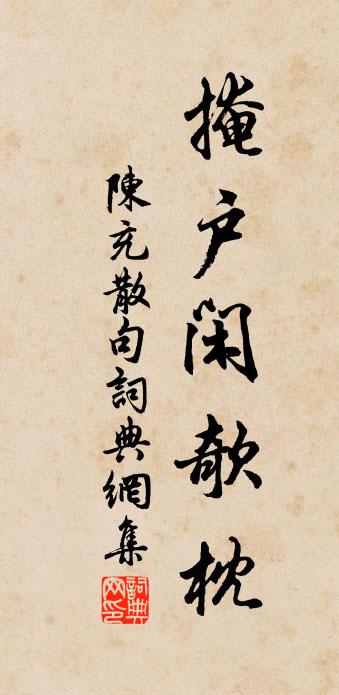 掩户闲欹枕
陳充散句詞典網集
詞典网印